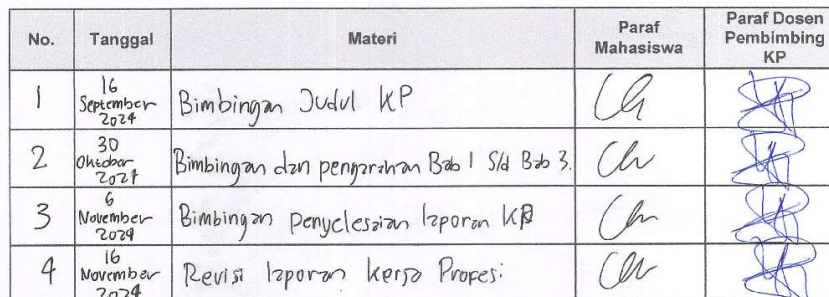 No. Tanggal Materi Paraf Mahasiswa Paraf Dosen Pembimbing KP
1 16 September 2024 Bimbingan Judul KP
2 30 Oktober 2024 Bimbingan dan pengarahan Bab 1 S/d Bab 3.
3 6 November 2024 Bimbingan penyelesaian laporan KP
4 16 November 2024 Revisi laporan Kerja Profesi